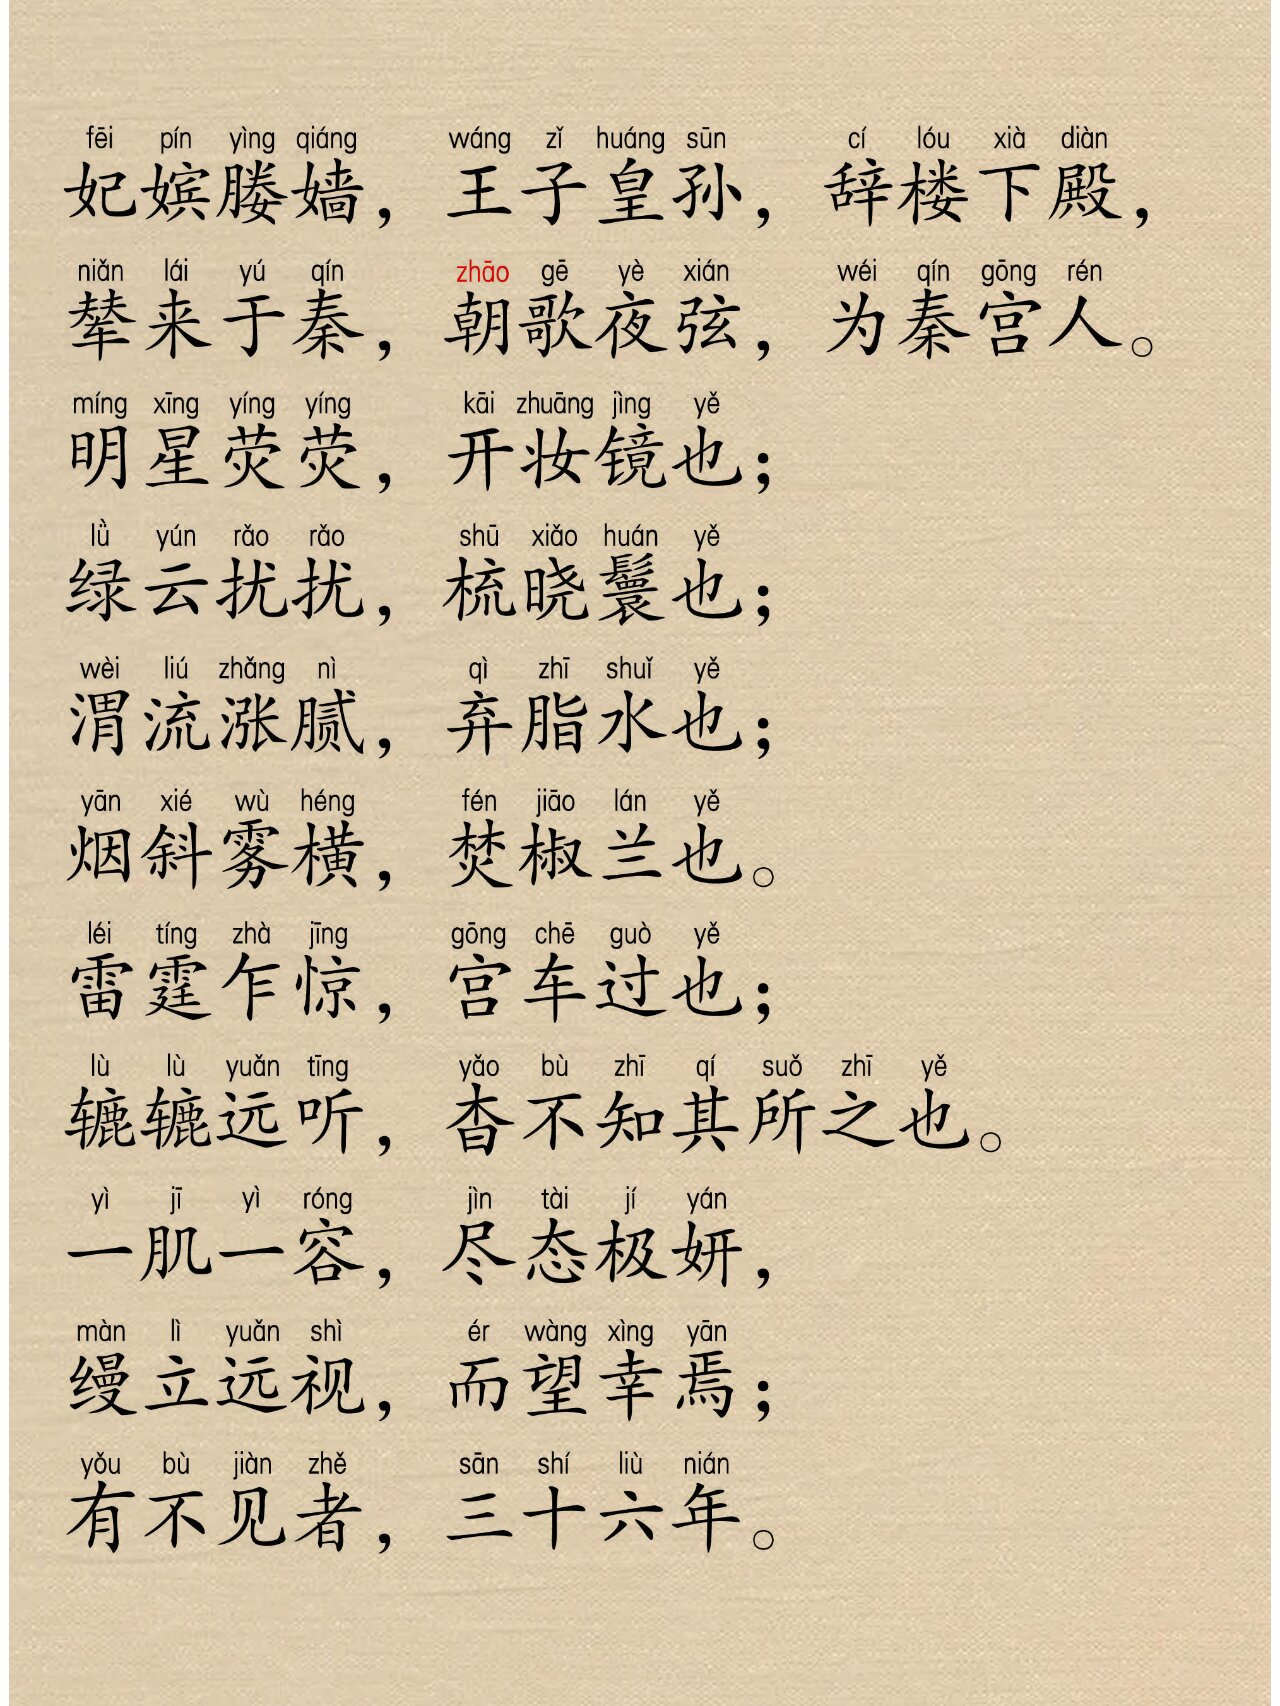 fēi pín yìng qiáng wáng zǐ huáng sūn cí lóu xià diàn
妃嫔媵嫱，王子皇孙，辞楼下殿，
niǎn lái yú qín zhāo gē yè xián wéi qín gōng rén
辇来于秦，朝歌夜弦，为秦宫人。
míng xīng yíng yíng kāi zhuāng jìng yě
明星荧荧，开妆镜也；
lǜ yún rǎo rǎo shū xiǎo huán yě
绿云扰扰，梳晓鬟也；
wèi liú zhǎng nì qì zhī shuǐ yě
渭流涨腻，弃脂水也；
yān xié wù héng fén jiāo lán yě
烟斜雾横，焚椒兰也。
léi tíng zhà jīng gōng chē guò yě
雷霆乍惊，宫车过也；
lù lù yuǎn tīng yǎo bù zhī qí suǒ zhī yě
辘辘远听，杳不知其所之也。
yì jī yì róng jìn tài jí yán
一肌一容，尽态极妍，
màn lì yuǎn shì ér wàng xìng yān
缦立远视，而望幸焉；
yǒu bù jiàn zhě sān shí liù nián
有不见者，三十六年。